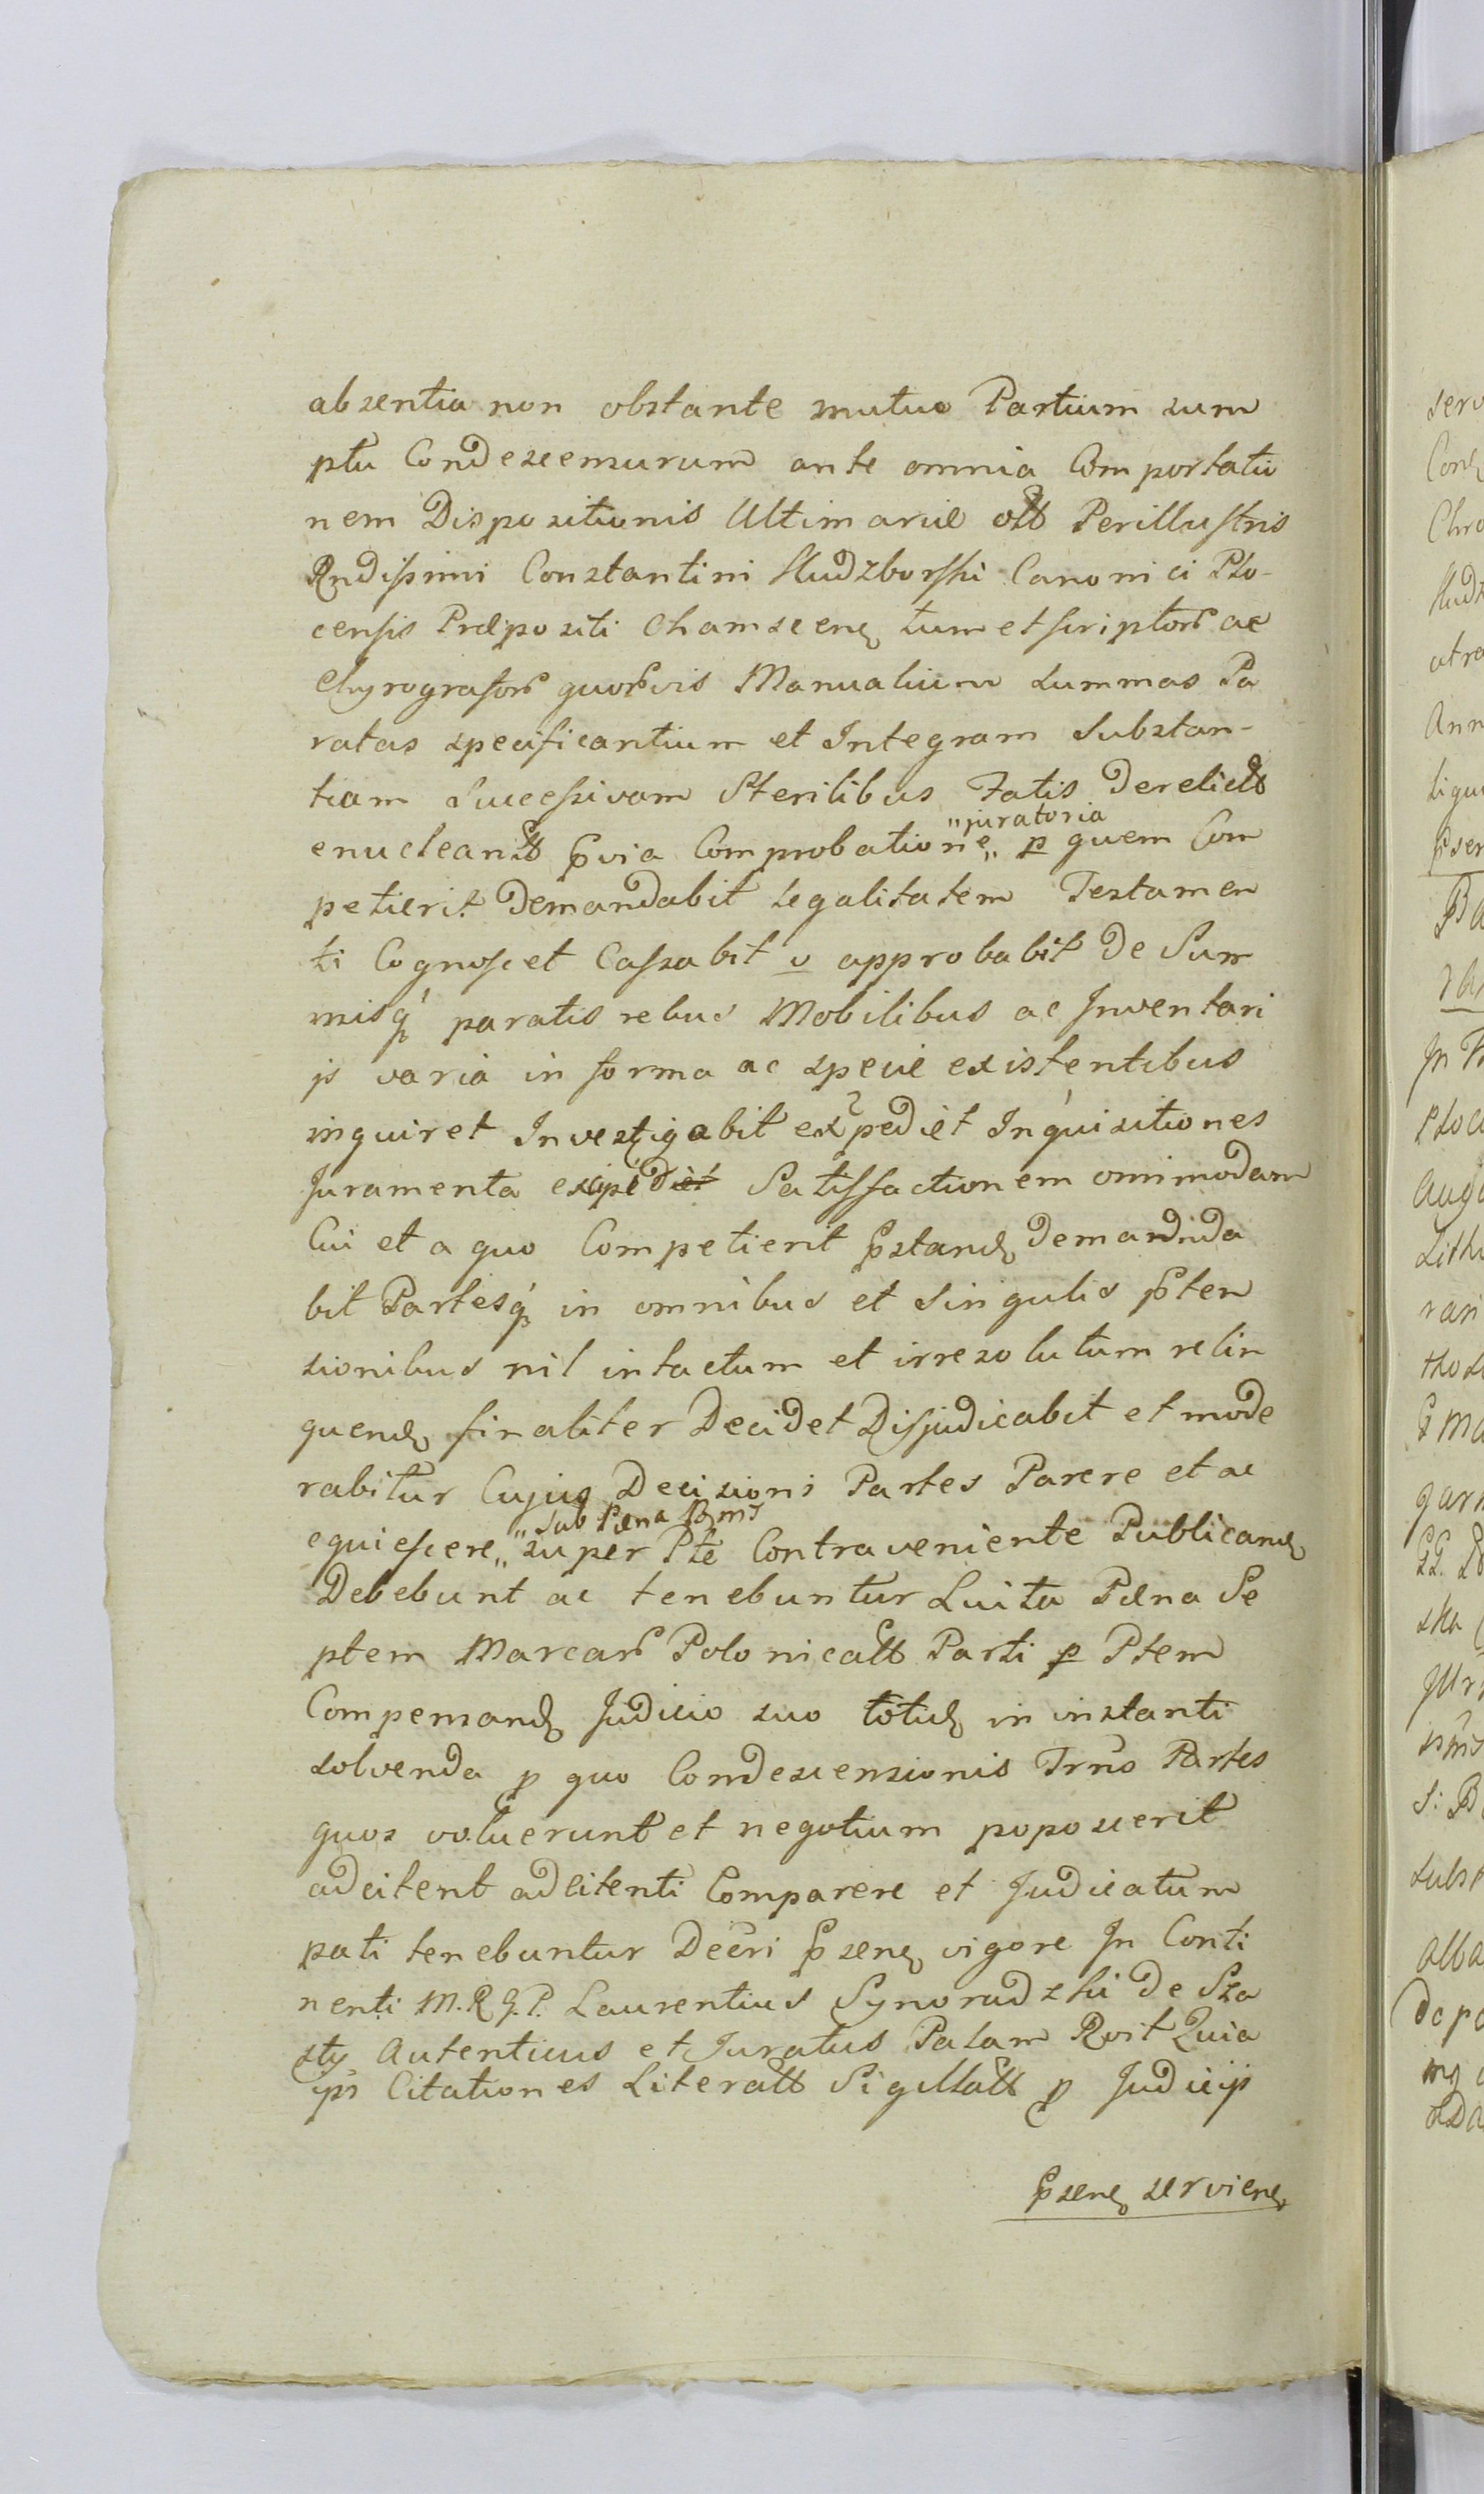 absentia non obstante mutuo Partium sum
ptu Condescensurum ante omnia Comportatio
nem Dispositionis Ultimariæ olb Perillustris
Rndissimi Constantini Hudzborski Canonici Plo-
censis Præpositi Chamscen tum et scriptor ac
Chyrografor quorvis Manualium summas Pa
ratas specificantium et Integram Substan-
tiam Successivam Sterilibus Fatis Derelict
enucleant pvia Comprobatione „ p quem Com
"juratoria
petierit Demandabit legalitatem Testamen
ti Cognoscet Cassabit v approbabit De Sum
misq paratis rebus Mobilibus ac Inventari
js varia in forma ac specie existentibus
inquiret Investigabit expediet Inquisitiones
Juramenta excipiet Satisfactionem omnimodam
Cui et a quo Competierit pstand Demandnda
bit Partesq in omnibus et singulis pten
sionibus nil intactum et irresolutum relin
quend finaliter Decidet Disjudicabit et mode
rabitur Cujus Decisioni Partes Parere et ac
equiescere „ super Pte Contraveniente Publicand
"sub Pæna Bms
Debebunt ac tenebuntur Luita Pæna Se
ptem Marcar Polonicall Parti p Ptem
Compensand Judicio suo totid in instanti
solvenda p quo Condescensionis Trno Partes
quos voluerunt et negotium poposcerit
adcitent adcitenti Comparere et Judicatum
pati tenebuntur Decri psen vigore In Conti
nenti M. R. G. P. Laurentius Synoradzki De Sza
sty Autenticus et Juratus Palam Rvit Quia
ips Citationes Literall Sigillall p Judicij
psen servien